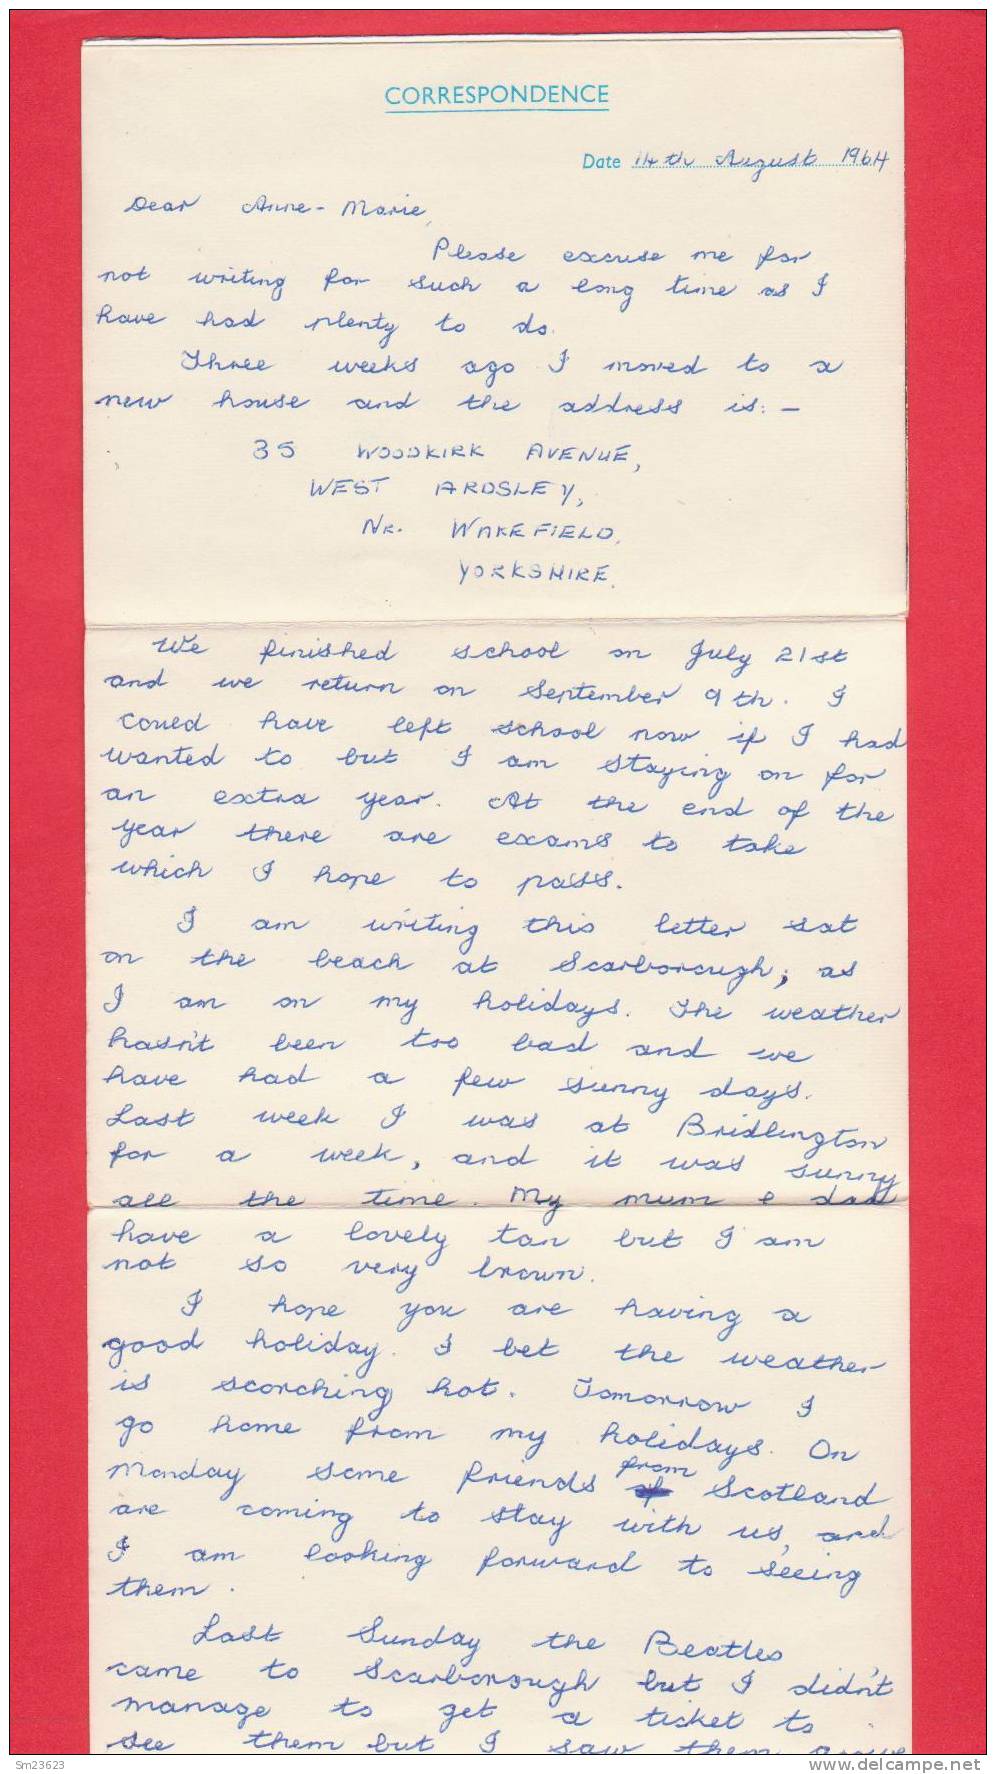 CORRESPONDENCE
Date 14th August 1964
Dear Anne-Marie,
Please excuse me for
not writing for such a long time as I
have had plenty to do.
Three weeks ago I moved to a
new house and the address is:-
35 WOODKIRK AVENUE,
WEST ARDSLEY,
NR. WAKEFIELD,
YORKSHIRE.
We finished school on July 21st
and we return on September 9th. I
could have left school now if I had
wanted to but I am staying on for
an extra year. At the end of the
year there are exams to take
which I hope to pass.
I am writing this letter sat
on the beach at Scarborough; as
I am on my holidays. The weather
hasn't been too bad and we
have had a few sunny days.
Last week I was at Bridlington
for a week, and it was sunny
all the time. My mum & dad
have a lovely tan but I am
not so very brown.
I hope you are having a
good holiday. I bet the weather
is scorching hot. Tomorrow I
go home from my holidays. On
Monday some friends from Scotland
are coming to stay with us, and
I am looking forward to seeing
them.
Last Sunday the Beatles
came to Scarborough but I didn't
manage to get a ticket to
see them but I saw them arrive
Sm23623
www.delcampe.net